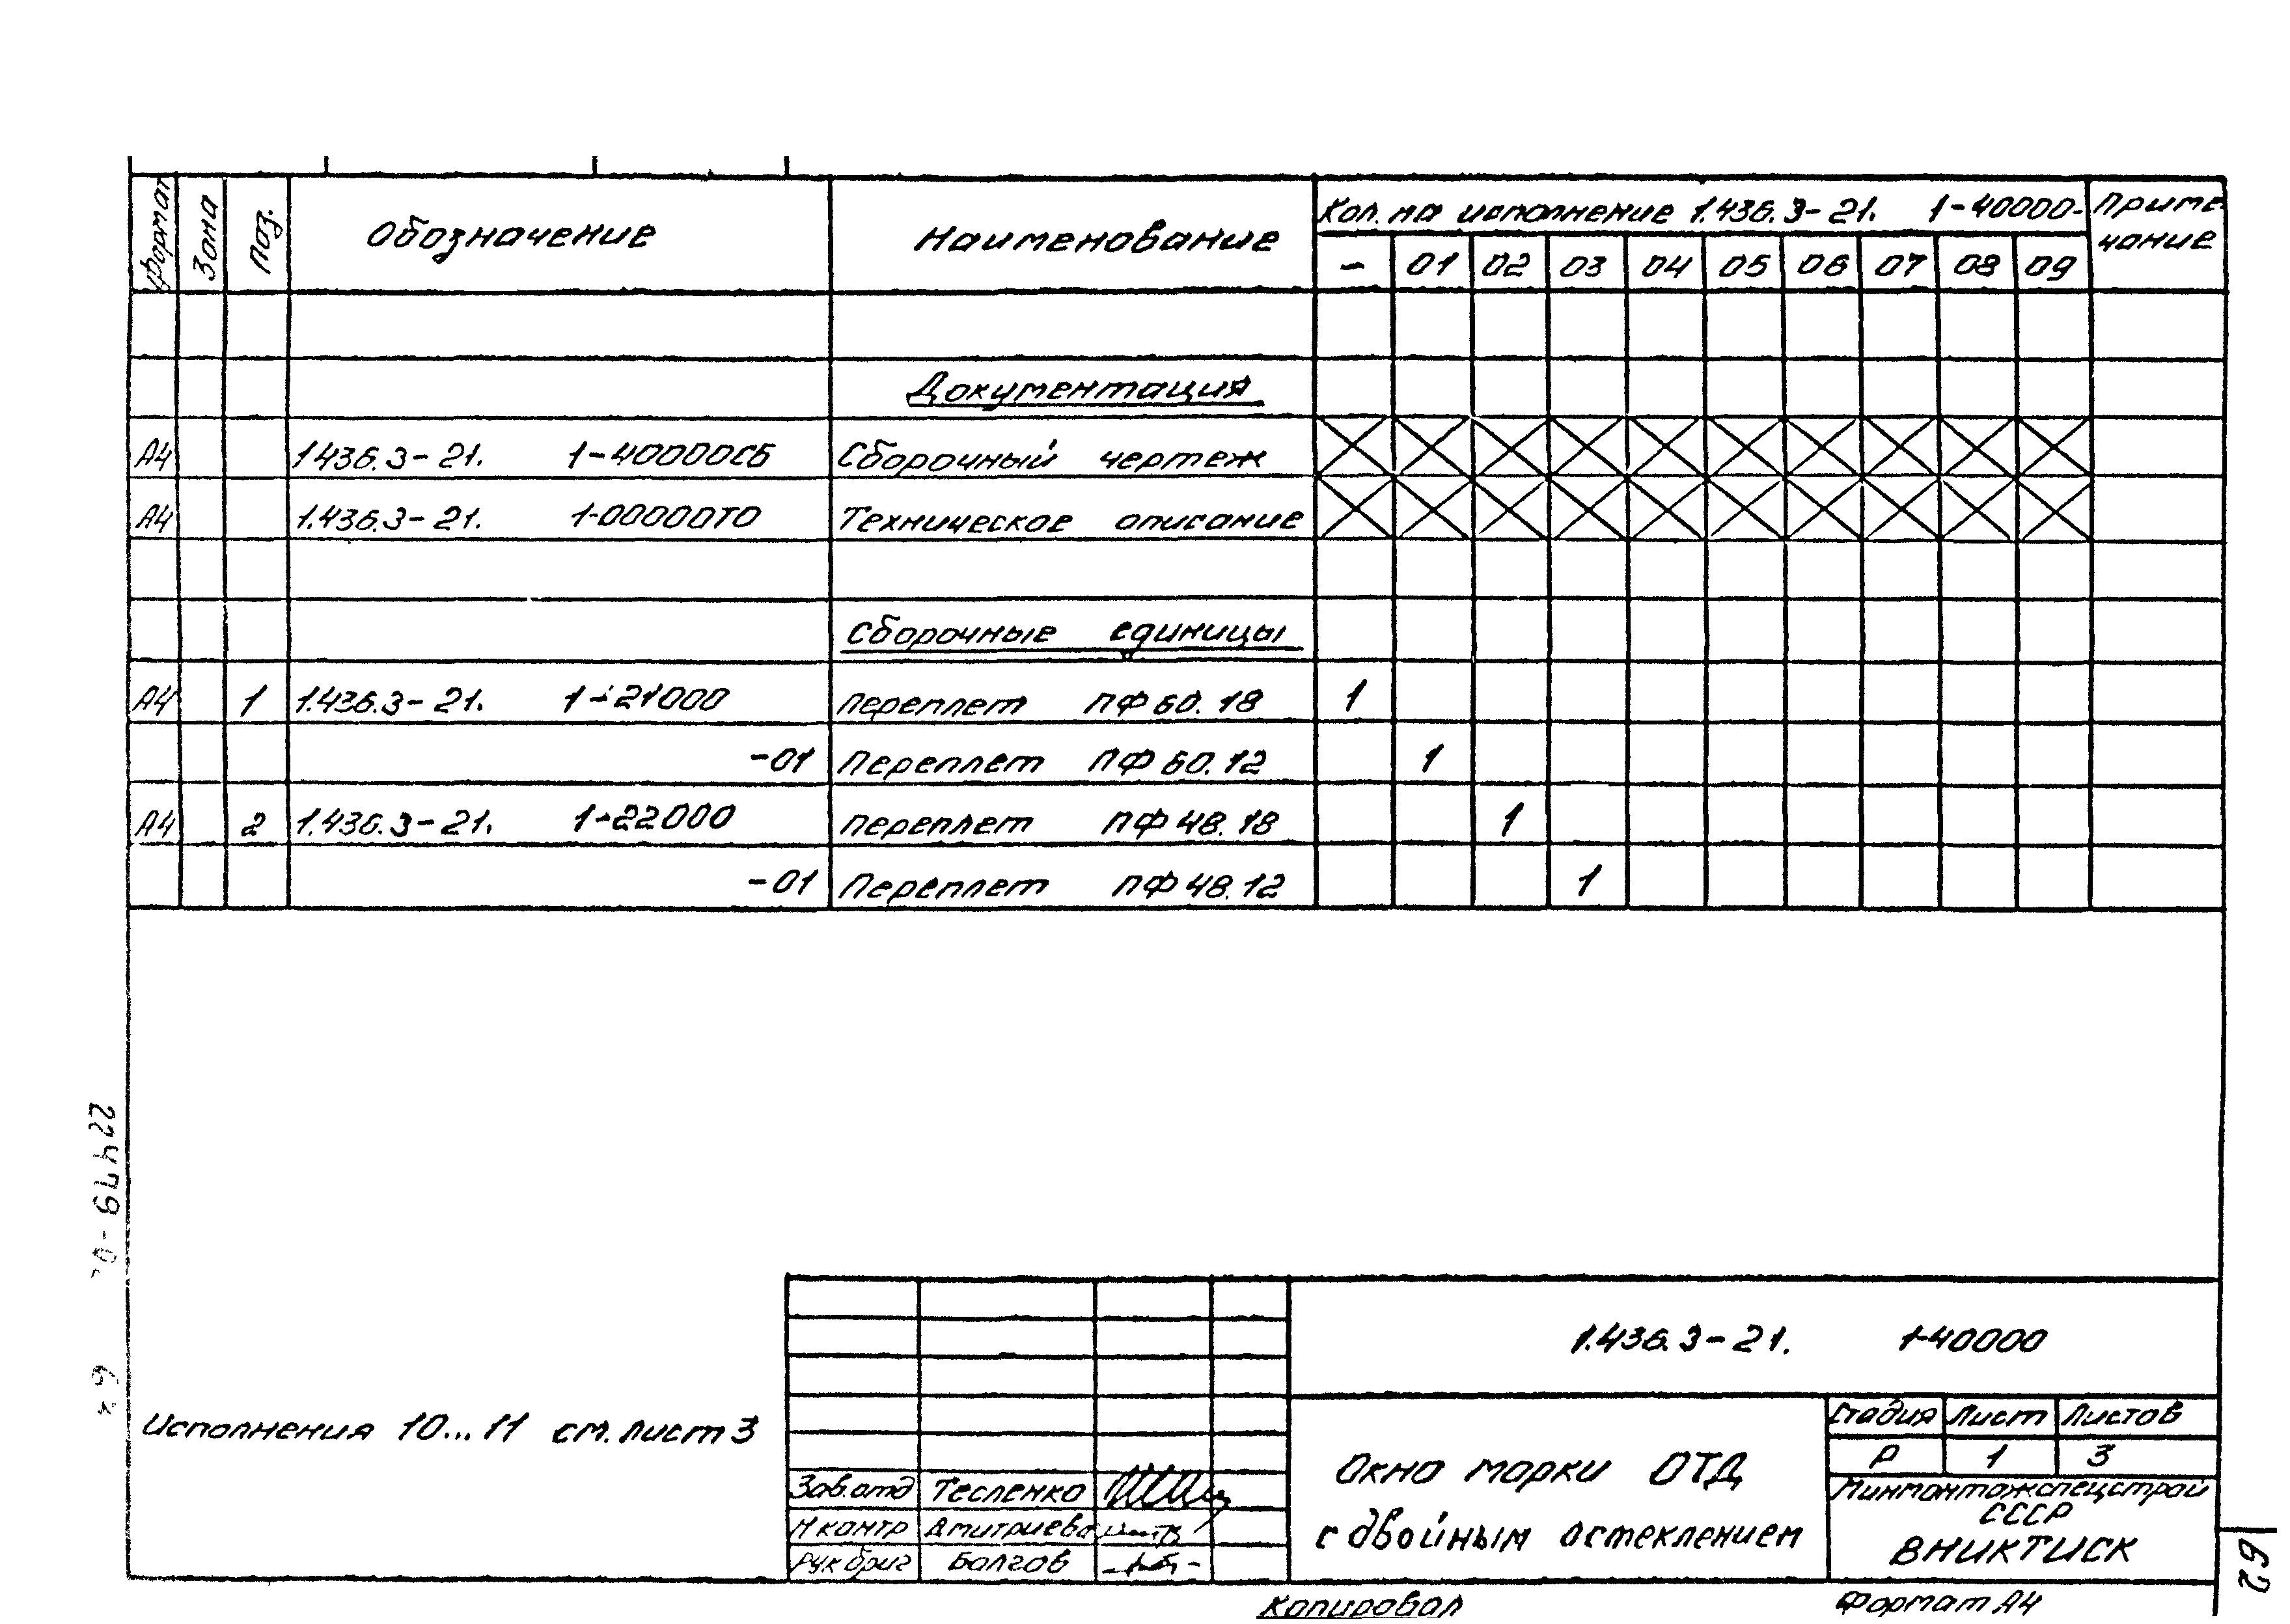 Формат Зона Поз. Обозначение Наименование Кол. на исполнение 1.436.3-21. 1-40000- Приме-
чание
- 01 02 03 04 05 06 07 08 09
Документация
А4 1.436.3-21. 1-40000СБ Сборочный чертеж
А4 1.436.3-21. 1-00000ТО Техническое описание
Сборочные единицы
А4 1 1.436.3-21. 1-21000 Переплет ПФ 60.18 1
-01 Переплет ПФ 60.12 1
А4 2 1.436.3-21. 1-22000 Переплет ПФ 48.18 1
-01 Переплет ПФ 48.12 1
Исполнения 10...11 см. лист 3
1.436.3-21. 1-40000
Зав.отд Тесленко
Н контр Дмитриева
Рук бриг Болгов
Окно марки ОТД
с двойным остеклением
Стадия Лист Листов
Р 1 3
Минмонтажспецстрой
СССР
ВНИКТИСК
Копировал Формат А4
62
22479-0